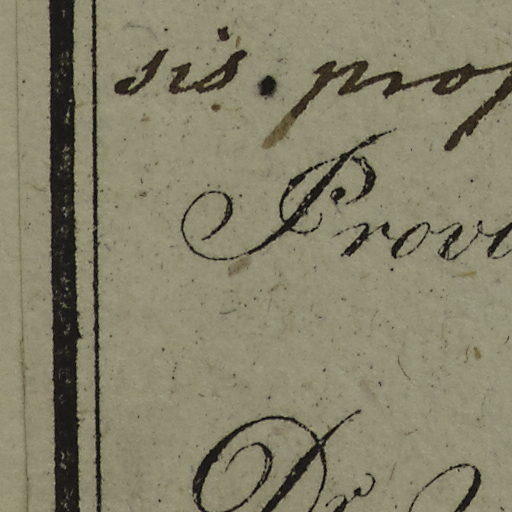 sis. prop
Provi
Dr